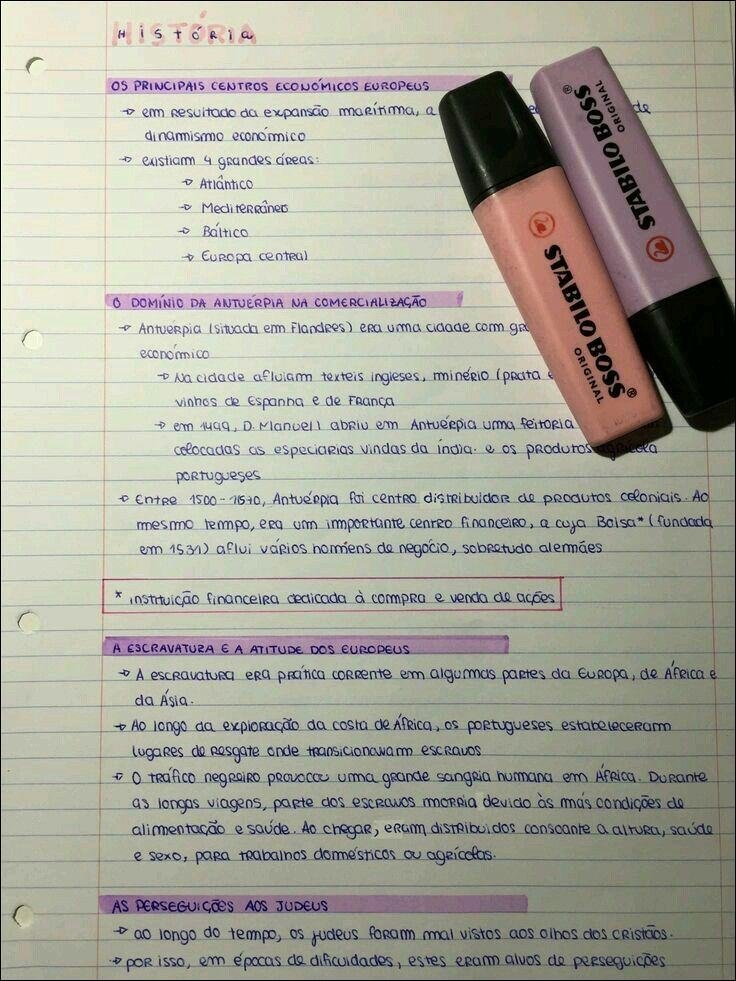 HISTÓRIA
OS PRINCIPAIS CENTROS ECONÓMICOS EUROPEUS
→ em resultado da expansão marítima, a de
dinamismo económico
→ existiam 4 grandes áreas:
→ Atlântico
→ Mediterrâneo
→ Báltico
→ Europa central
O DOMÍNIO DA ANTUÉRPIA NA COMERCIALIZAÇÃO
→ Antuérpia (situada em Flandres) era uma cidade com
económico
→ Na cidade afluiam texteis ingleses, minério (prata
vinhos de Espanha e de França
→ em 1499, D. Manuel I abriu em Antuérpia uma feitoria
colocadas as especiarias vindas da índia. e os produtos agrícola
portugueses
→ Entre 1500-1570, Antuérpia foi centro distribuidor de produtos coloniais. Ao
mesmo tempo, era um importante centro financeiro, a cuja Bolsa* (fundada
em 1531) aflui vários homens de negócio, sobretudo alemães
* instituição financeira dedicada à compra e venda de ações
A ESCRAVATURA E A ATITUDE DOS EUROPEUS
→ A escravatura era prática corrente em algumas partes da Europa, de África e
da Ásia.
→ Ao longo da exploração da costa de África, os portugueses estabeleceram
lugares de resgate onde transicionavam escravos
→ O tráfico negreiro provocou uma grande sangria humana em África. Durante
as longas viagens, parte dos escravos morria devido às más condições de
alimentação e saúde. Ao chegar, eram distribuidos consoante a altura, saúde
e sexo, para trabalhos domésticos ou agrícolas.
AS PERSEGUIÇÕES AOS JUDEUS
→ ao longo do tempo, os judeus foram mal vistos aos olhos dos cristãos.
→ por isso, em épocas de dificuldades, estes eram alvos de perseguições
STABILO BOSS®
ORIGINAL
STABILO BOSS®
ORIGINAL